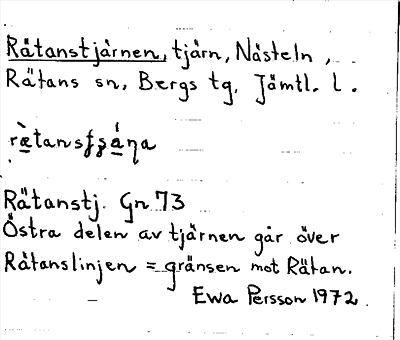 Rätanstjärnen, tjärn, Nästeln,
Rätans sn, Bergs tg, Jämtl. l.
Rätanstj. Gn 73
Östra delen av tjärnen går över
Rätanslinjen = gränsen mot Rätan.
Ewa Persson 1972.